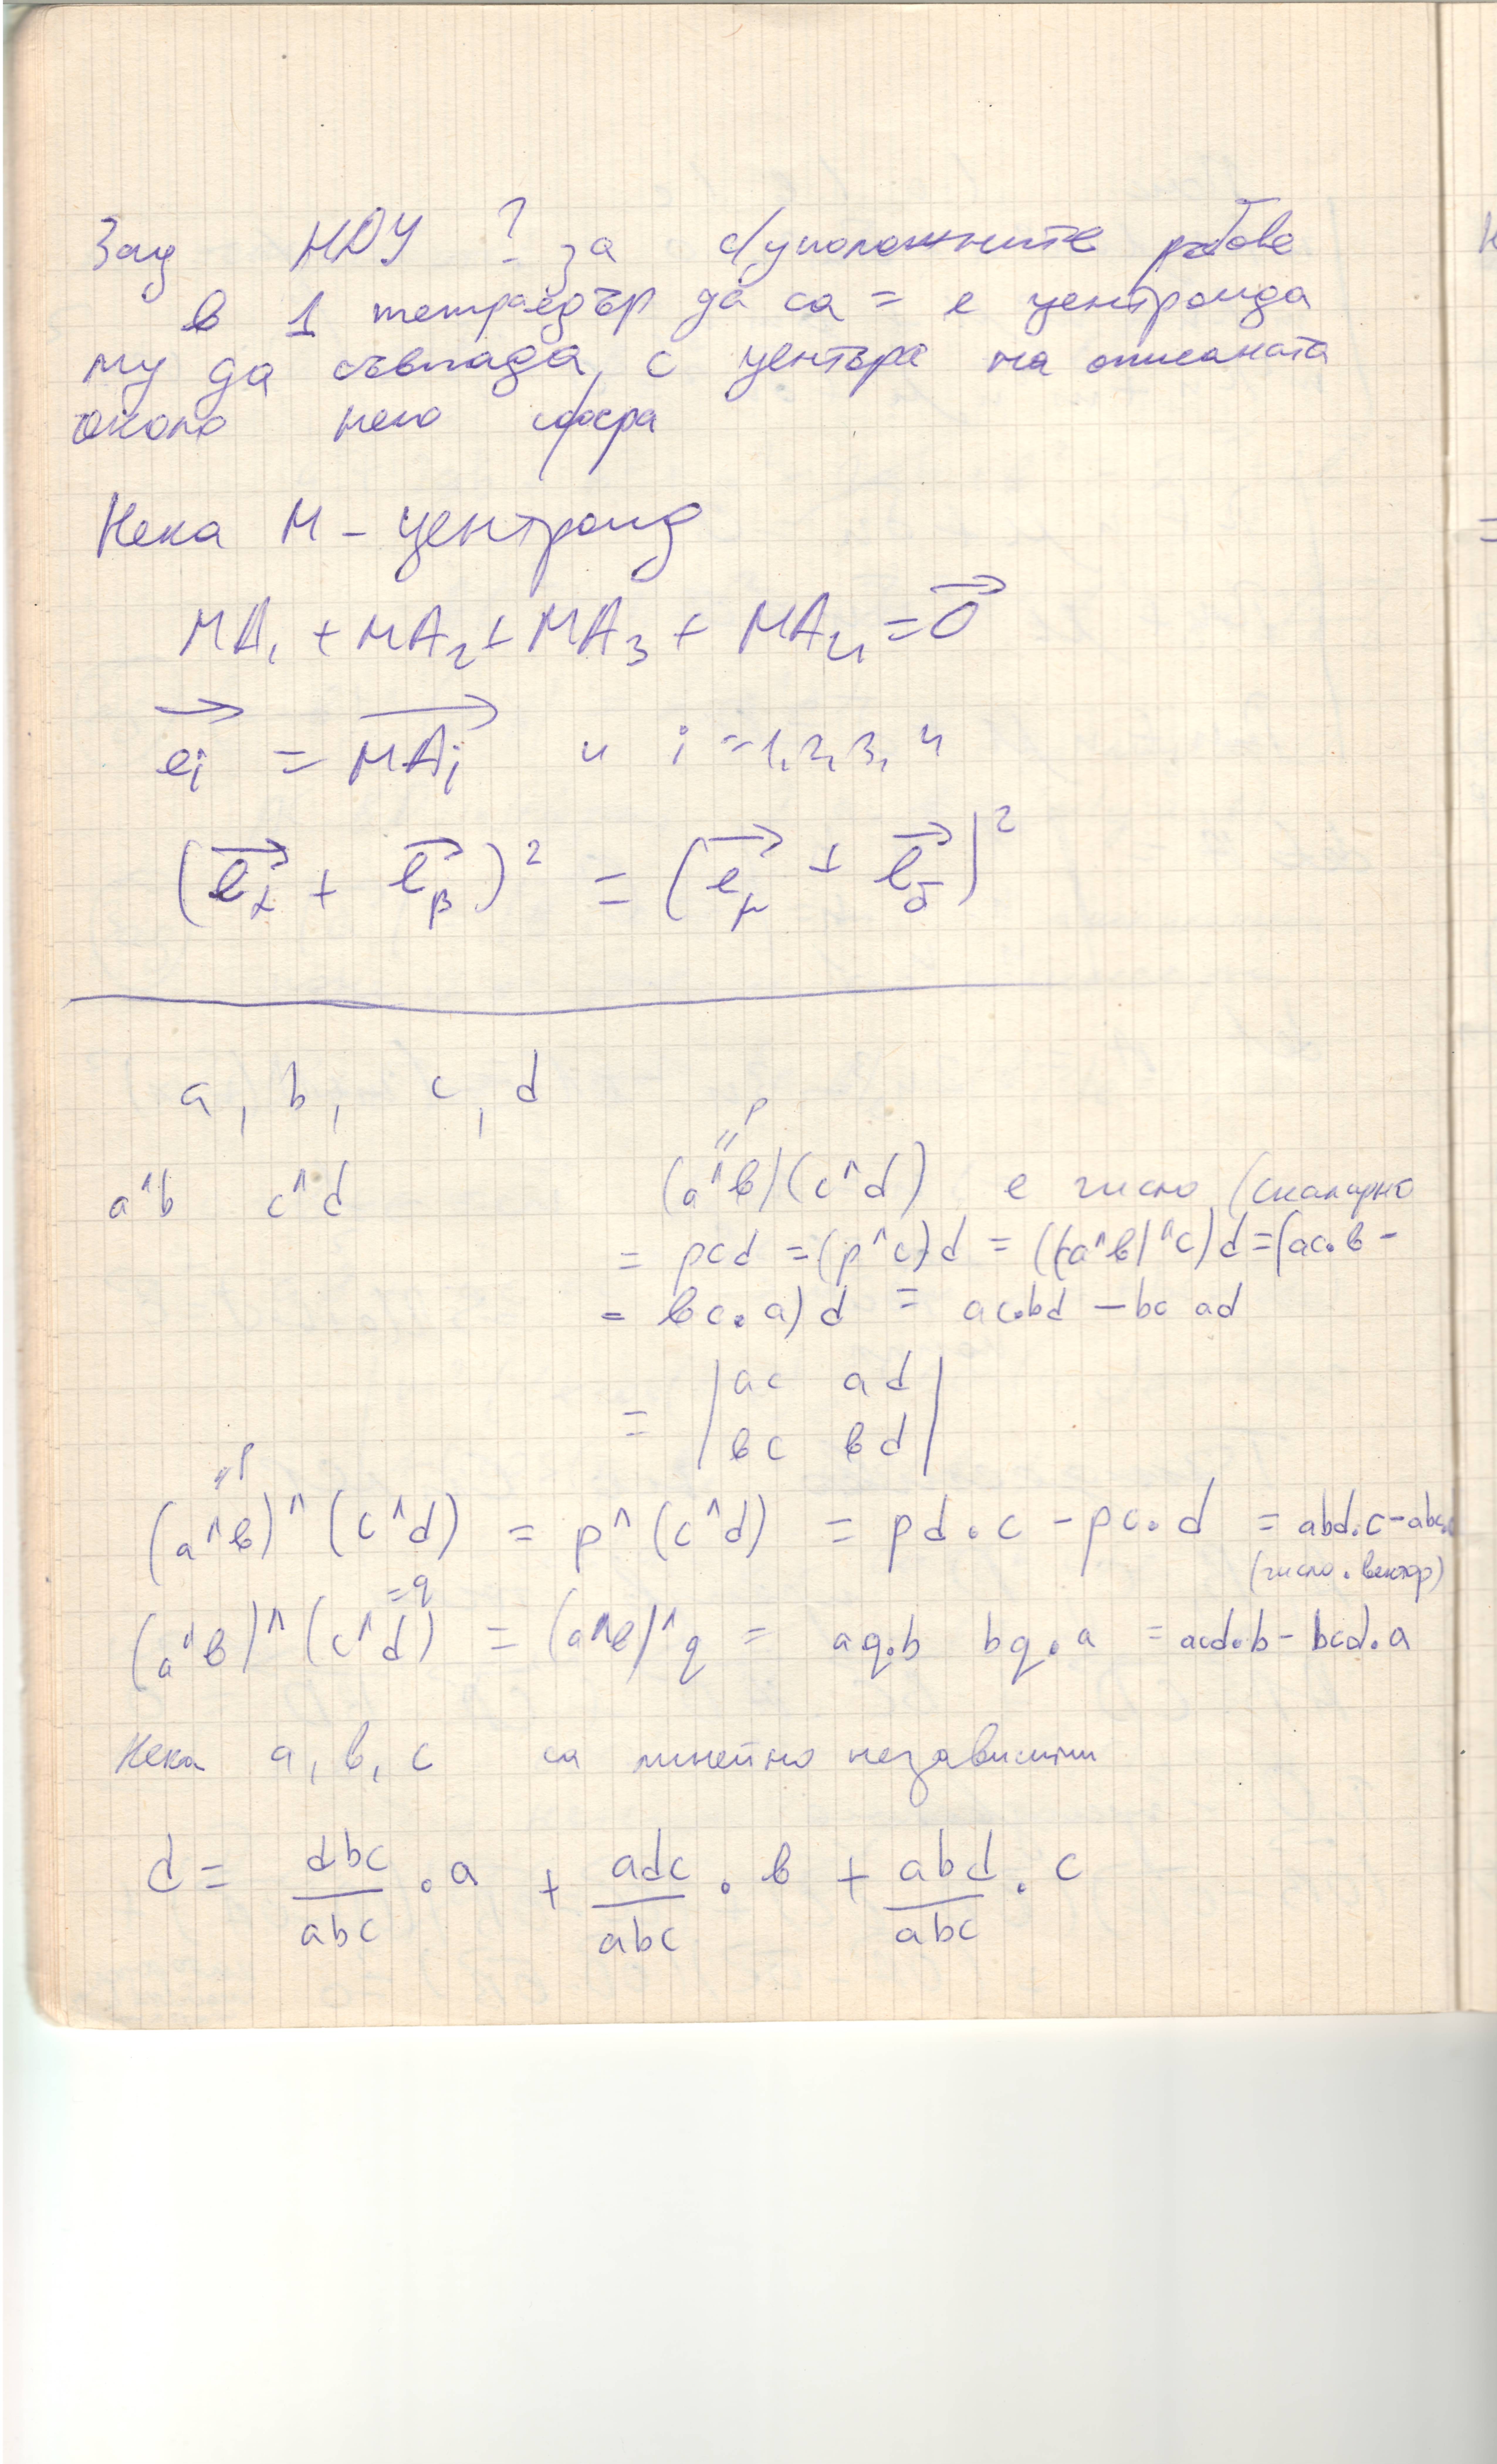 Зад НДУ ? за с/уположните ръбове
в 1 тетраедър да са = е центроида
му да съвпада с центъра на описаната
около него сфера
Нека M - центроид
MA₁ + MA₂ + MA₃ + MA₄ = 0⃗
e⃗ᵢ = MAᵢ и i = 1, 2, 3, 4
(e⃗_α + e⃗_β)² = (e⃗_γ + e⃗_δ)²
a, b, c, d
"p
a^b c^d (a^b)(c^d) е число (скаларно
= pcd = (p^c)d = ((a^b)^c)d = (ac.b -
- bc.a)d = ac.bd - bc ad
= |ac ad|
|bc bd|
"p
(a^b)^(c^d) = p^(c^d) = pd.c - pc.d = abd.c - abc.
(число . вектор)
=q
(a^b)^(c^d) = (a^b)^q = aq.b bq.a = acd.b - bcd.a
Нека a, b, c са линейно независими
d = dbc/abc . a + adc/abc . b + abd/abc . c